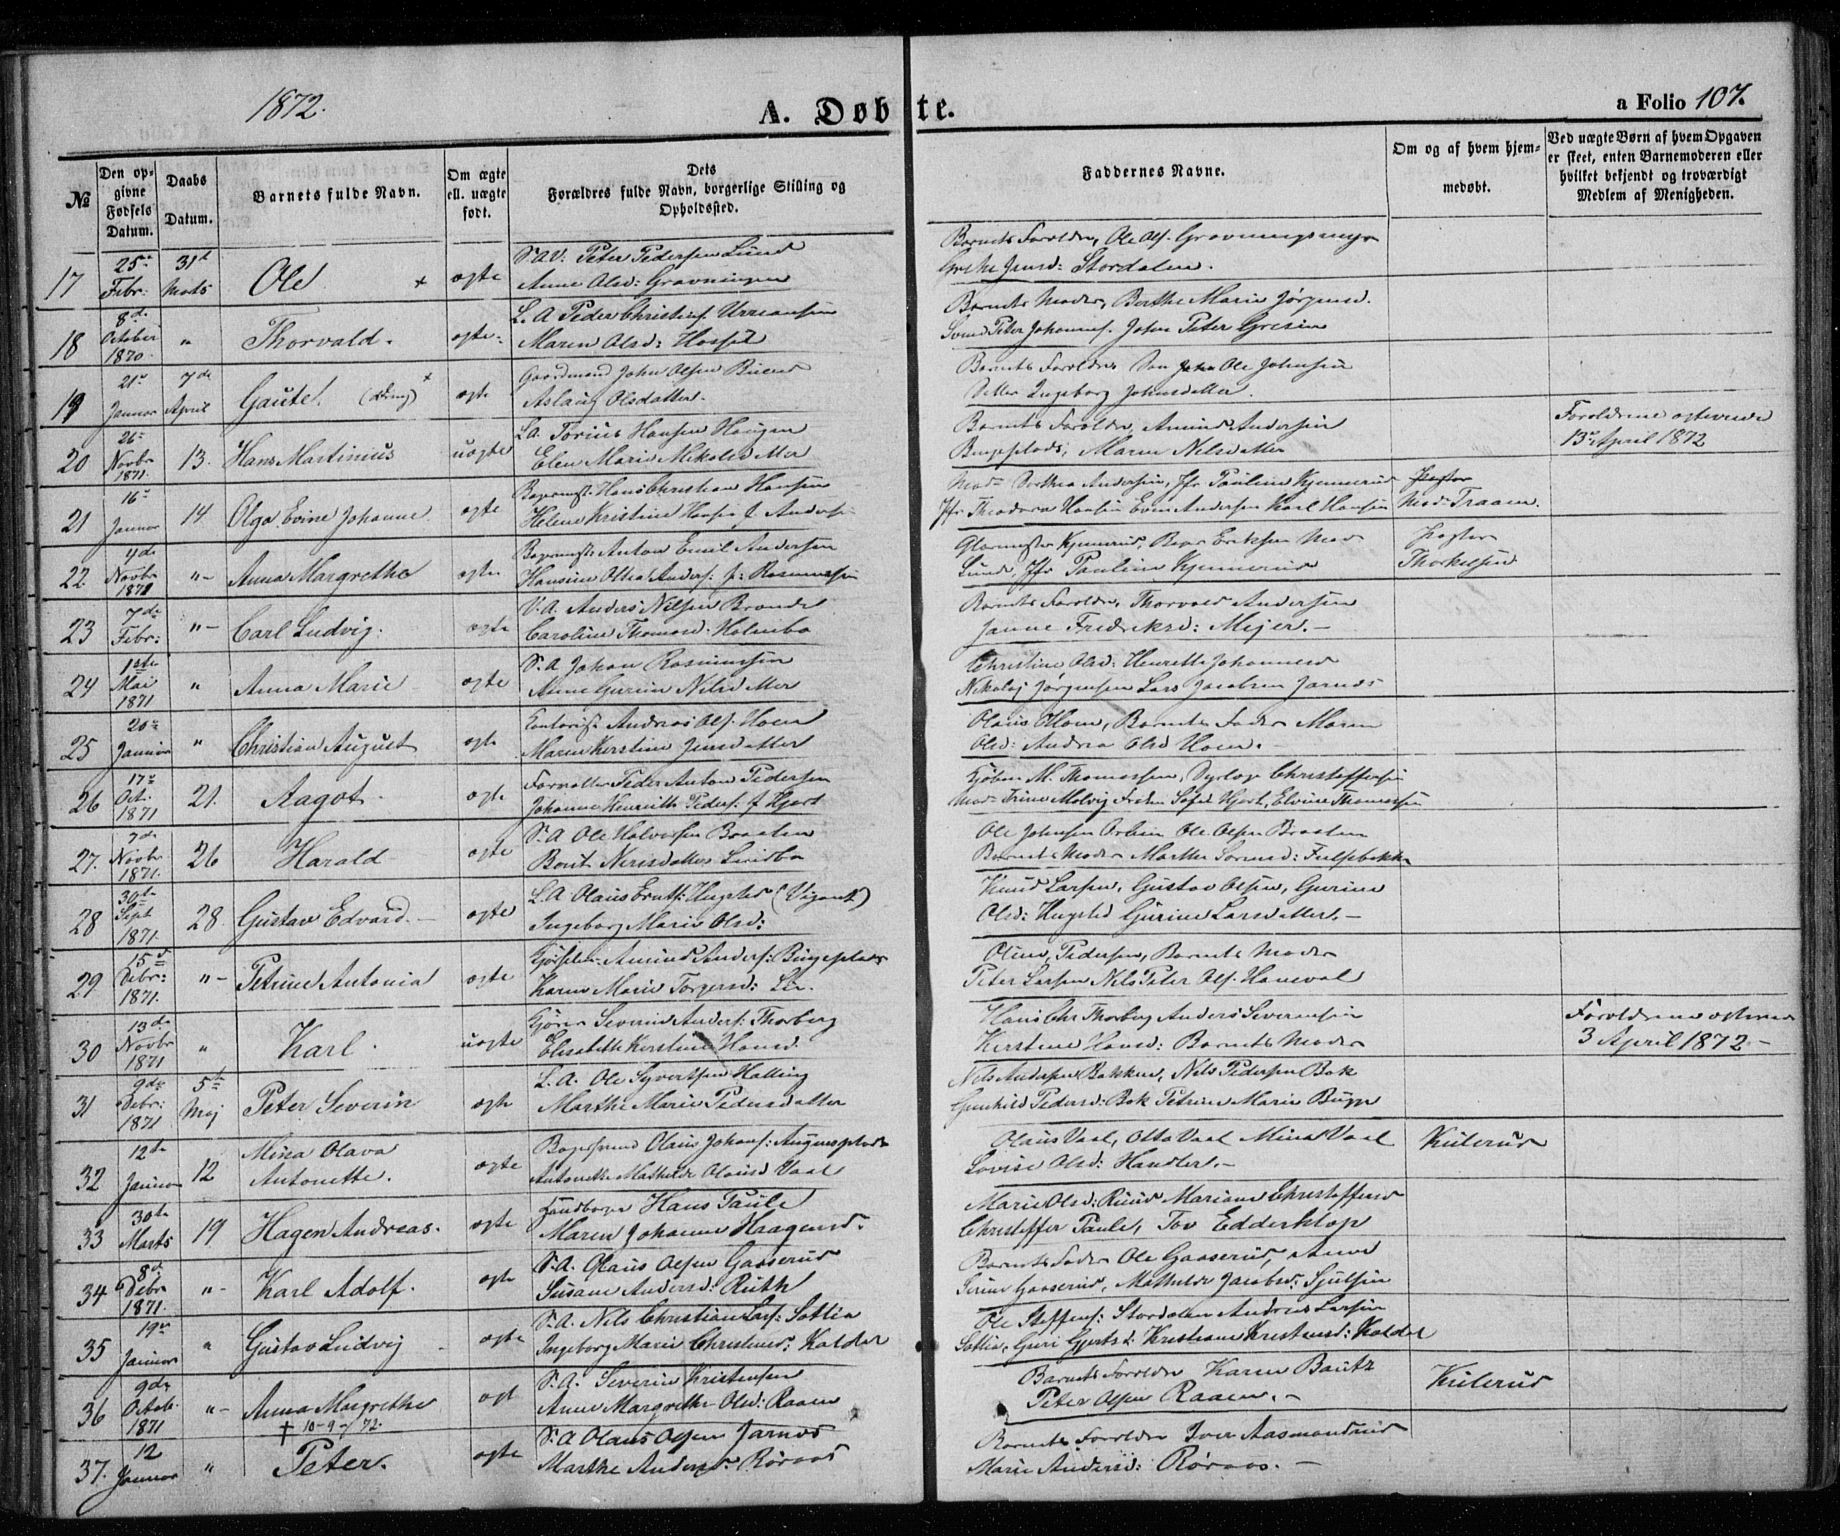 1872.
A. Døbte.
a Folio 107.
№
Den opgivne Fødsels Datum.
Daabs Datum.
Barnets fulde Navn.
Om ægte ell. uægte født.
Dets Forældres fulde Navn, borgerlige Stilling og Opholdssted.
Faddernes Navne.
Om og af hvem hjemmedøbt.
Ved uægte Børn af hvem Opgaven er skeet, enten Barnemoderen eller hvilket bekjendt og troværdigt Medlem af Menigheden.
17 25de Febr: 31te Marts Ole × ægte Peter Pedersen Lund Barnets Forældre, Ole Ols. Gravningsmyr
Anne Olsd: Gravningen Grethe Jensd: Stordalen.
18 8de October 1870. " Thorvald. ægte L.A. Peder Christians. Barnets Moder, Berthe Marie Jørgensd.
Maren Olsd: Hosset Svend Peter Johannes. John Peter
19 21de Januar 7de April Gaute. × ægte Gaardmand John Olsen Barnets Forældre Ole Johnsen
Aslaug Olsdatter. Datter Ingeborg Johnsdatter.
20 26de Novbr 1871. 13. Hans Martinius uægte L.A. Torius Hansen Haugen Barnets Forældre, Amund Andersen Forældrene ægteviede
Elen Marie Nikolsdatter Bingeplads, Maren Nilsdatter 13de April 1872
21 16de Januar 14 Olga Evine Johanne ægte Bagermst. Hans Christian Hansen Mad: Dorthea Andersen, Jfr Pauline Kjennerud
Helene Kristine Hans. f. Anders. Jfr Theodora Hansen Even Andersen Karl Hansen Mad: Traaen.
22. 4de Novbr 1871 "- Anna Margrethe ægte Bagermst. Anton Emil Andersen Glarmester Kjennerud, Bager Eriksen Mad Pastor
Hansine Othea Anders: f: Rasmussen Lund, Jfr Pauline Kjennerud Thorkelsen
23 7de Febr: "- Carl Ludvig. ægte V.A. Anders Nilsen Brandt Barnets Forældre, Thorvald Andersen
Caroline Thomasd: Holmbo Janne Fredriksd: Mejer. -
24 1ste Mai 1871 " Anna Marie ægte S.A. Johan Rasmussen Christine Olsd: Henrette Johannesd
Anne Gurine Nilsdatter Nikolaj Jørgensen Lars Jacobsen Jarnæs
25 20de Januar " Christian August ægte Contorist Andreas Ols. Hoen Olaus Hoen, Barnets Fader Maren
Maren Kirstine Jensdatter Olsd: Andrea Olsd Hoen. -
26 17de Oct. 1871 21. Aagot. ægte Forvalter Peder Anton Pedersen Kjøbm. M. Thomassen, Dyrlæge Christoffersen
Johanne Henriette Peders: f Hjort Mad: Trine Molvig Frøken Sofie Hjort, Elvine Thomassen
27. 7de Novbr 1871. 26 Harald ægte S.A. Ole Halvorsen Braaten Ole Johnsen Ole Olsen Braaten
Borit Nirisdatter Lindbo Barnets Moder Marthe Sørensd: Fulsebakke
28 30te Sept 1871. 28 Gustav Edvard. - ægte L.A. Olaus Hugsted (Vigant) Knud Larsen, Gustav Olsen, Gurine
Ingeborg Marie Olsd: Olsd: Hugsted Gurine Larsdatter. -
29 15de Debr: 1871. "- Petrine Antonia ægte Amund Anders: Bingeplads Oline Pedersen, Barnets Moder
Karen Marie Torgersd: Lie. Peter Larsen Nils Peter Ols. Haneval
30 13de Novbr 1871 " Karl. uægte Severin Anders: Thorberg Hans Chr Thorberg Anders Severinsen Forældrene ægteviede
Elisabeth Kirstine Hansd. Kirstine Hansd: Barnets Moder 3 April 1872 -
31 9de Debr: 1871 5te Maj Peter Severin ægte L.A. Ole Syvertsen Halling Nils Andersen Bakken, Nils Pedersen Bak
Marthe Marie Pedersdatter Gunhild Pedersd: Bak Petrine Marie Bugge
32 12te Januar 12 Mina Olava ægte Bagersvend Olaus Johans: Olaus Vaal, Otto Vaal Mina Vaal Kulerud
Antonette. Antonette Mathilde Olausd Vaal Lovise Olsd: Handler. -
33 30te Marts 19. Hagen Andreas. ægte Landboer Hans Paule Marie Olsd: Ruud Mariane Christoffersd
Maren Johanne Haagensd. Christoffer Paule, Tov Edderklop
34 8de Debr 1871. "- Karl Adolf. ægte S.A. Olaus Olsen Gaaserud Barnets Fader Ole Gaaserud, Anne
Susane Andersd: Ruth Gaaserud, Mathilde Jacobsd:
35 19de Januar " Gustav Ludvig - ægte S.A. Nils Christian Lars: Sottia Ole Steffens: Stordalen Andreas Larsen
Ingeborg Marie Christensd: Kaldal Sottia, Guri Gjertsd: Kristiane Kristensd: Kaldal
36 9de Octob. 1871 "- Anna Margrethe ægt S.A. Severin Kristensen Barnets Forældre Karen Bautz Kulerud
† 10-9-/72. Anne Margrethe Olsd: Raaen Peter Olsen Raaen. -
37. 12 Januar " Peter. ægte S.A Olaus Olsen Jarnæs Barnets Forældre Iver Aasmundrud
Marthe Andersd: Røraas Marie Andersd: Røraas. -